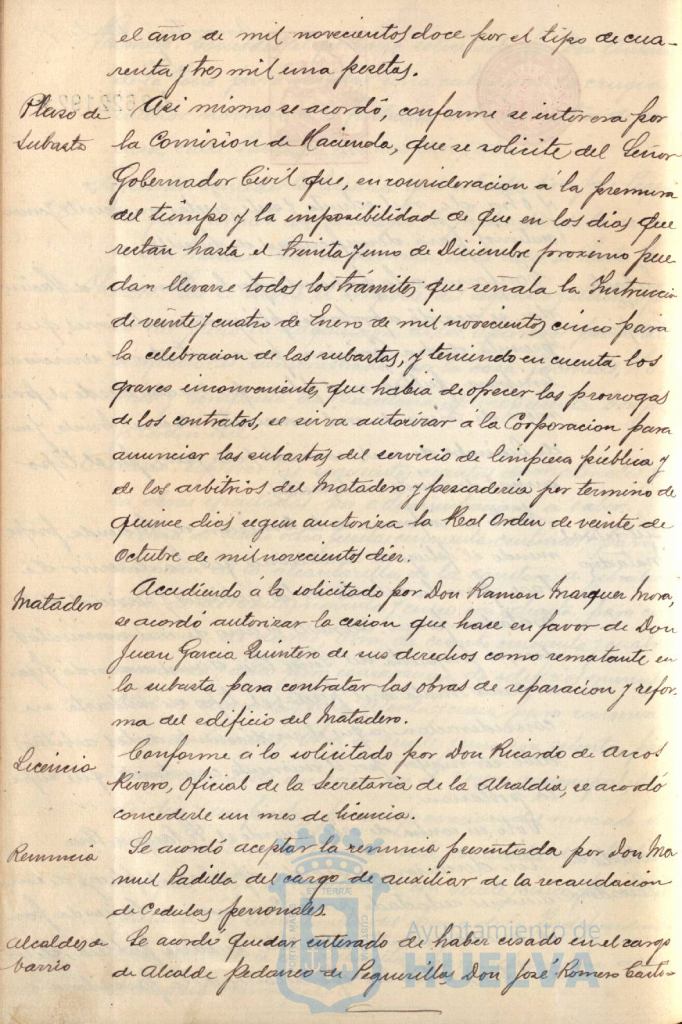 el año de mil novecientos doce por el tipo de cua-
renta y tres mil una pesetas.
Plazo de
Subasta
Asi mismo se acordó, conforme se interesa por
la Comision de Hacienda, que se solicite del Señor
Gobernador Civil que, en consideracion á la premura
del tiempo y la imposibilidad de que en los dias que
restan hasta el treinta y uno de Diciembre proximo pue
dan llevarse todos los trámites que señala la Instruccion
de veinte y cuatro de Enero de mil novecientos cinco para
la celebracion de las subastas, y teniendo en cuenta los
graves inconvenientes que habia de ofrecer las prorrogas
de los contratos, se sirva autorizar á la Corporacion para
anunciar las subastas del servicio de limpieza pública y
de los arbitrios del Matadero y pescaderia por termino de
quince dias segun auctoriza la Real Orden de veinte de
Octubre de mil novecientos diez.
Matadero
Accediendo á lo solicitado por Don Ramon Marquez Mora,
se acordó autorizar la cesion que hace en favor de Don
Juan Garcia Quintero de sus derechos como rematante en
la subasta para contratar las obras de reparacion y refor-
ma del edificio del Matadero.
Licencia
Conforme á lo solicitado por Don Ricardo de Arcos
Rivero, Oficial de la Secretaria de la Alcaldia, se acordó
concederle un mes de licencia.
Renuncia
Se acordó aceptar la renuncia presentada por Don Ma
nuel Padilla del cargo de auxiliar de la recaudacion
de Cedulas personales.
Alcaldes de
barrio
Se acordó quedar enterado de haber cesado en el cargo
de Alcalde Pedaneo de Peguerillas Don José Romero
Ayuntamiento de
HUELVA